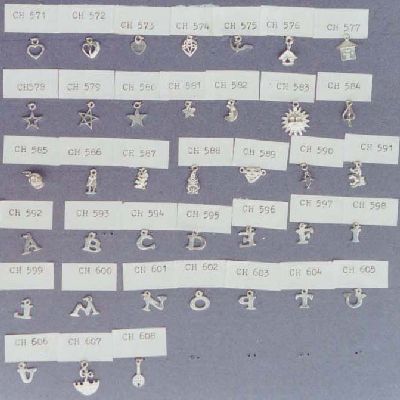 CH 571 CH 572 CH 573 CH 574 CH 575 CH 576 CH 577
CH578 CH 579 CH 580 CH 581 CH 582 CH 583 CH 584
CH 585 CH 586 CH 587 CH 588 CH 589 CH 590 CH 591
CH 592 CH 593 CH 594 CH 595 CH 596 CH 597 CH 598
A B C D E F I
CH 599 CH 600 CH 601 CH 602 CH 603 CH 604 CH 605
J M N O P T U
CH 606 CH 607 CH 608